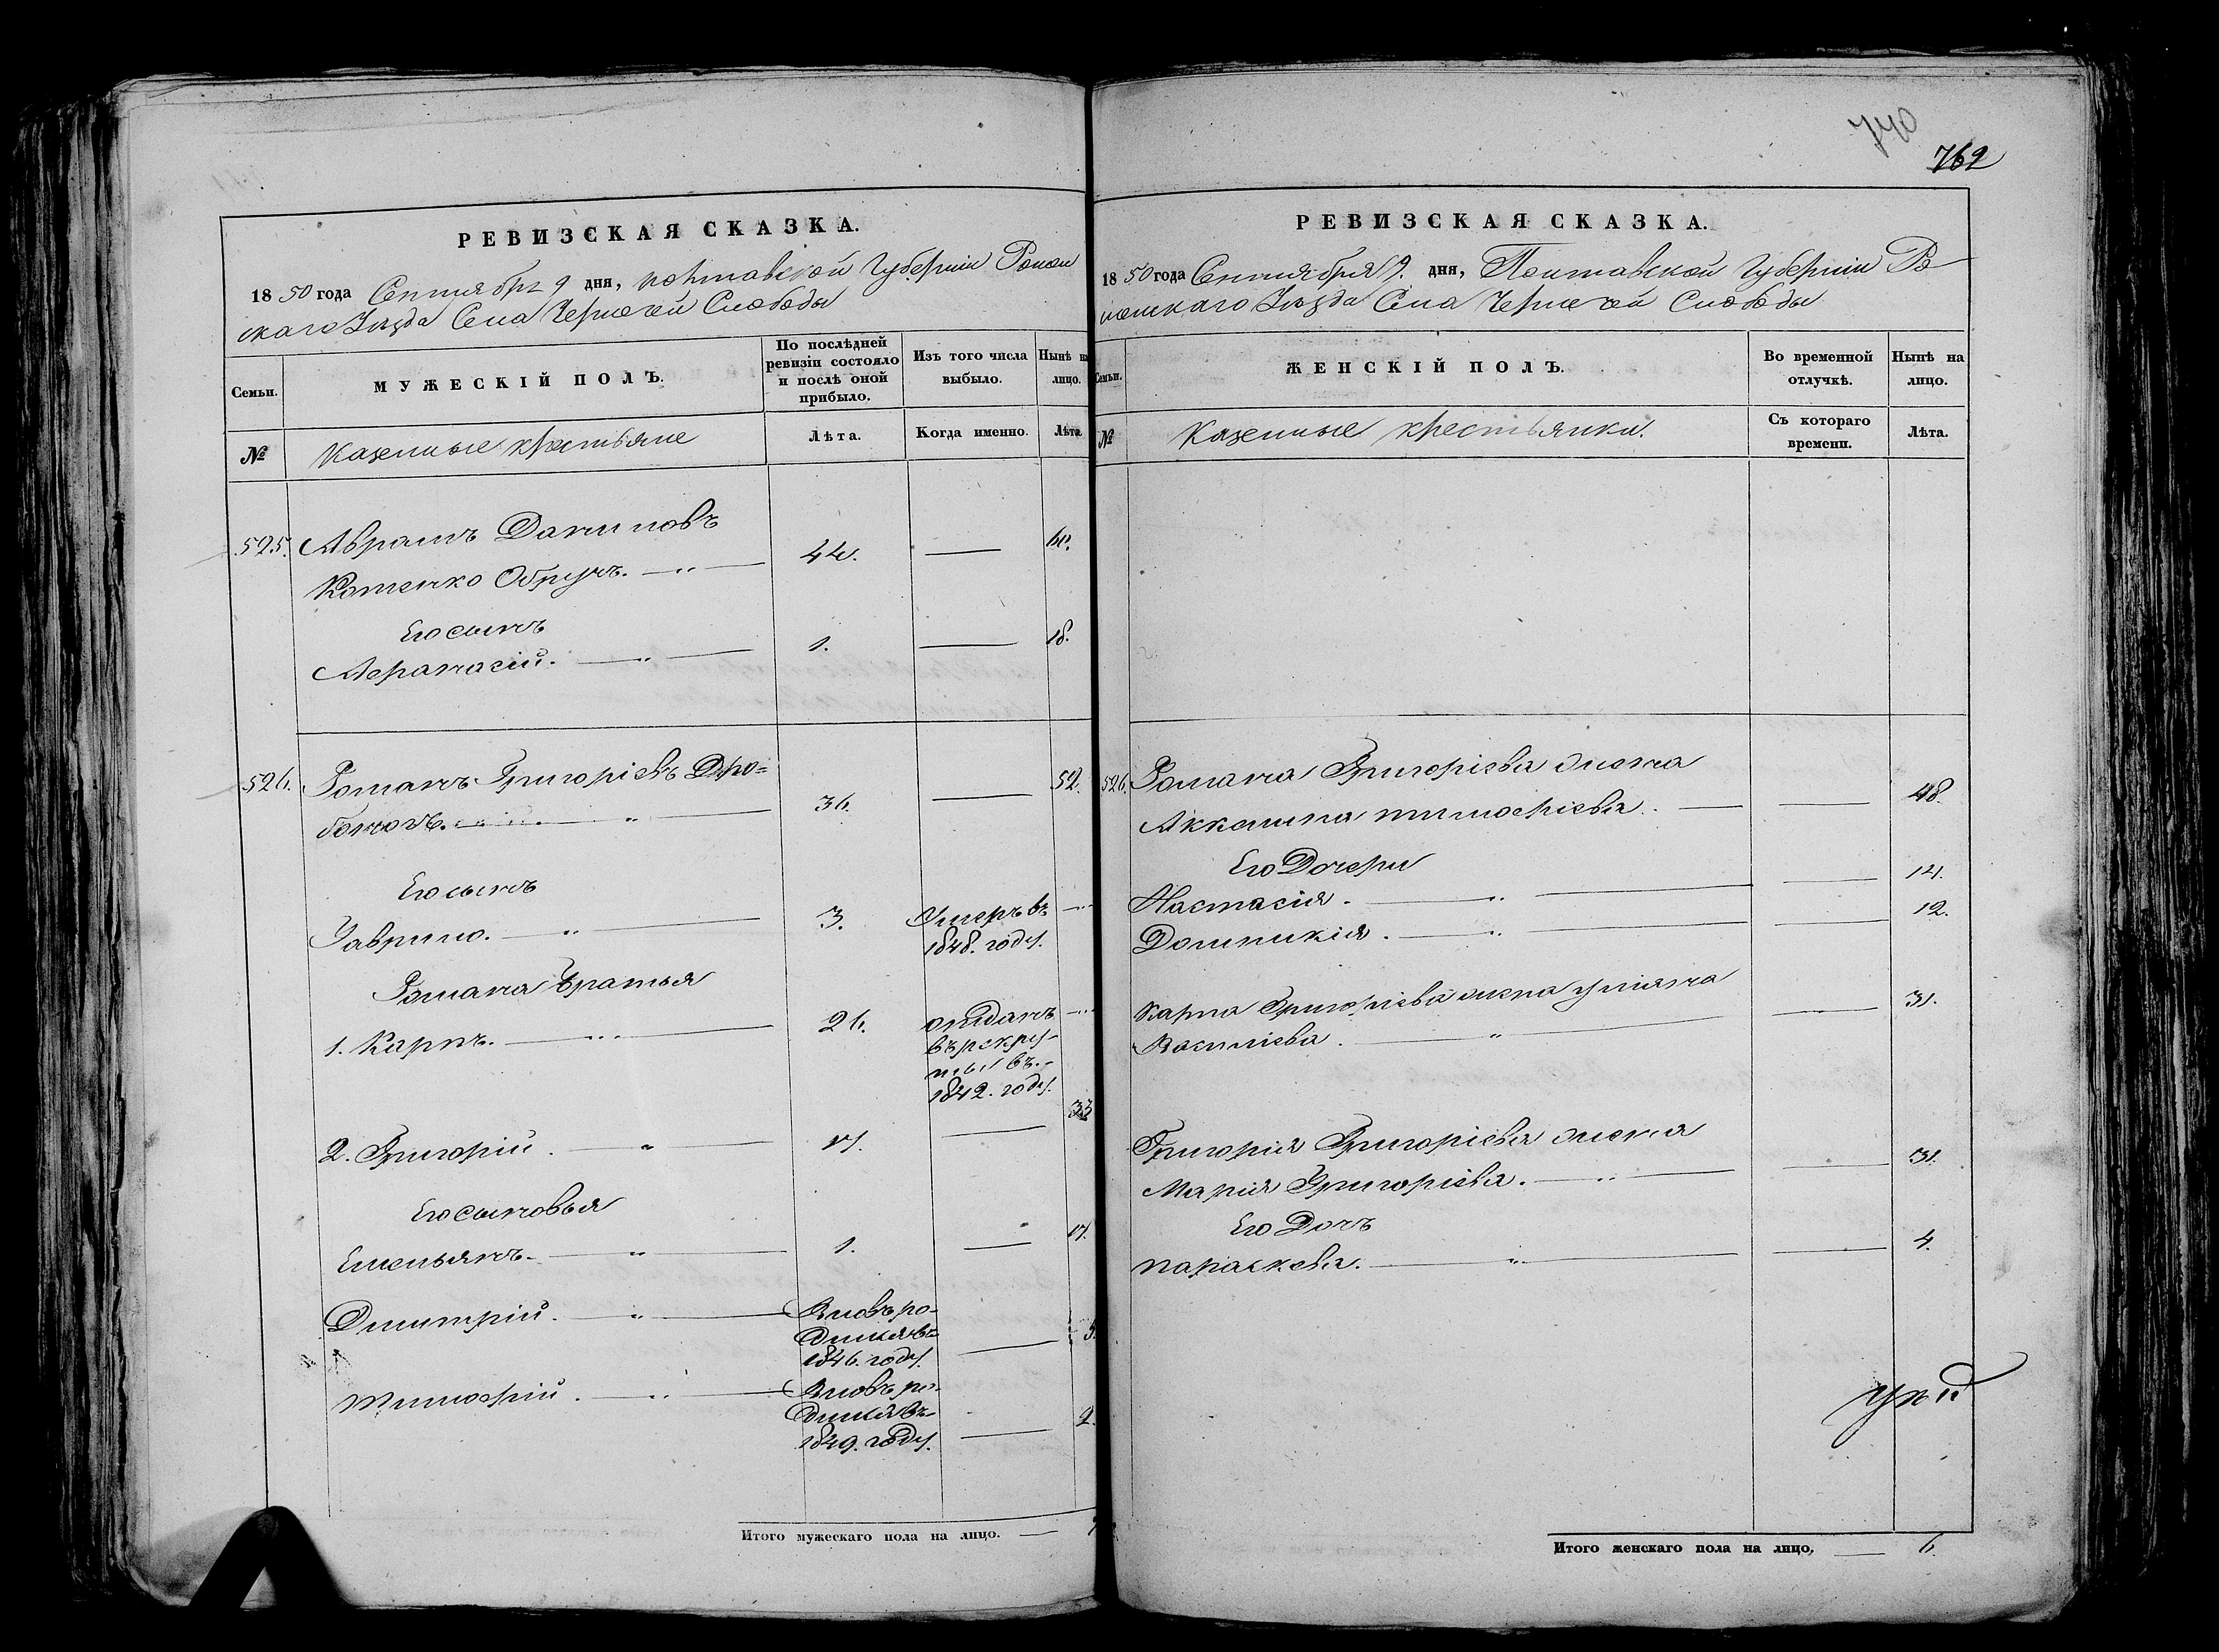 РЕВИЗСКАЯ СКАЗКА.
1850 года Сентября 9 дня, Полтавской Губернии Ромен
скаго Уѣзда Села Чернечей Слободы
Семьи.
МУЖЕСКІЙ ПОЛЪ.
По послѣдней
ревизіи состояло
и послѣ оной
прибыло.
Изъ того числа
выбыло.
Нынѣ на
лицо.
№
Казенные крестьяне
Лѣта.
Когда именно.
Лѣта.
525. Аврамъ Даниловъ
Котенко Обручъ. 44. 60.
Его сынъ
Афанасій. 1. 18.
526. Романъ Григоріевъ Дро=
боногъ. 36. 52.
Его сынъ
Гаврило. 3. Умеръ въ
1848. году.
Романа братья
1. Карпъ. 26. отданъ
въ рекру-
ты въ
1842. году.
2. Григорій. 17. 33
Его сыновья
Емельянъ. 1. 17.
Димитрій. Вновь ро-
дился въ
1846. году. 5.
Тимофій. Вновь ро-
дился въ
1849. году. 2.
Итого мужескаго пола на лицо.
740
762
РЕВИЗСКАЯ СКАЗКА.
1850 года Сентября 9. дня, Полтавской Губерніи Ро
менскаго Уѣзда Села Чернечей Слободы
Семьи.
ЖЕНСКІЙ ПОЛЪ.
Во временной
отлучкѣ.
Нынѣ на
лицо.
№
Казенные крестьянки.
Съ котораго
времени.
Лѣта.
526. Романа Григоріева жена
Аккелина тимофіева. 48.
Его Дочери
Настасія. 14.
Домникія. 12.
Карпа Григоріева жена уліяна
Василіева. 31.
Григорія Григоріева жена
Марія Григоріева. 31.
Его Дочъ
параскева. 4.
Итого женскаго пола на лицо, 6.